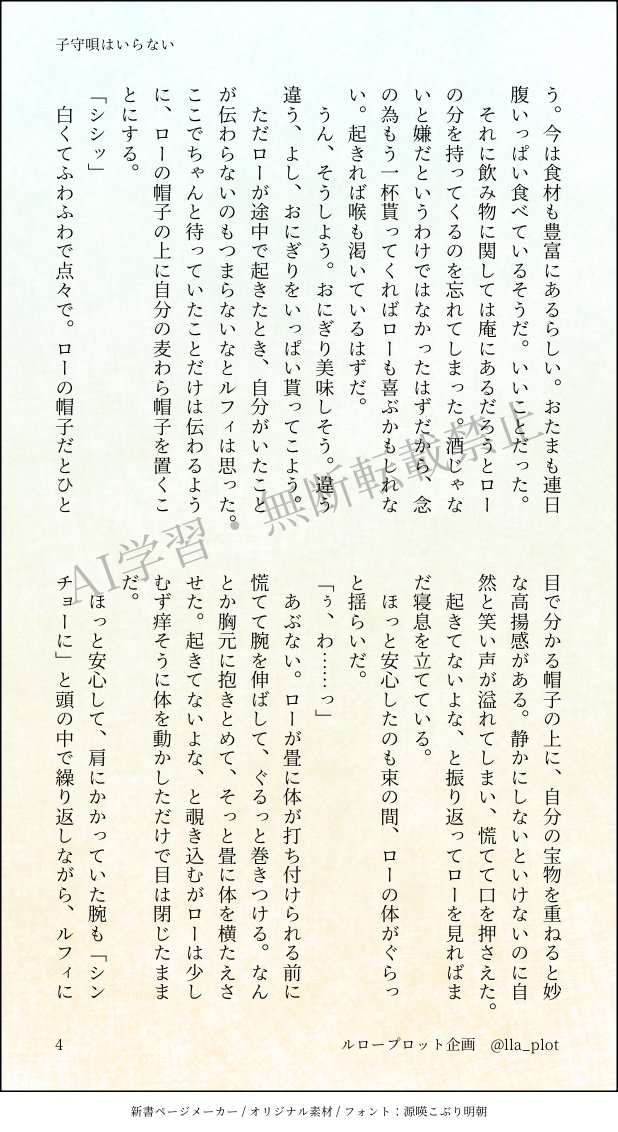 子守唄はいらない
う。今は食材も豊富にあるらしい。おたまも連日
腹いっぱい食べているそうだ。いいことだった。
　それに飲み物に関しては庵にあるだろうとロー
の分を持ってくるのを忘れてしまった。酒じゃな
いと嫌だというわけではなかったはずだから、念
の為もう一杯貰ってくればローも喜ぶかもしれな
い。起きれば喉も渇いているはずだ。
　うん、そうしよう。おにぎり美味しそう。違う
違う、よし、おにぎりをいっぱい貰ってこよう。
　ただローが途中で起きたとき、自分がいたこと
が伝わらないのもつまらないなとルフィは思った。
ここでちゃんと待っていたことだけは伝わるよう
に、ローの帽子の上に自分の麦わら帽子を置くこ
とにする。
「シシッ」
　白くてふわふわで点々で。ローの帽子だとひと
目で分かる帽子の上に、自分の宝物を重ねると妙
な高揚感がある。静かにしないといけないのに自
然と笑い声が溢れてしまい、慌てて口を押さえた。
　起きてないよな、と振り返ってローを見ればま
だ寝息を立てている。
　ほっと安心したのも束の間、ローの体がぐらっ
と揺らいだ。
「ぅ、わ……っ」
　あぶない。ローが畳に体が打ち付けられる前に
慌てて腕を伸ばして、ぐるっと巻きつける。なん
とか胸元に抱きとめて、そっと畳に体を横たえさ
せた。起きてないよな、と覗き込むがローは少し
むず痒そうに体を動かしただけで目は閉じたまま
だ。
　ほっと安心して、肩にかかっていた腕も「シン
チョーに」と頭の中で繰り返しながら、ルフィに
AI学習・無断転載禁止
4
ルロープロット企画　@lla_plot
新書ページメーカー / オリジナル素材 / フォント：源暎こぶり明朝